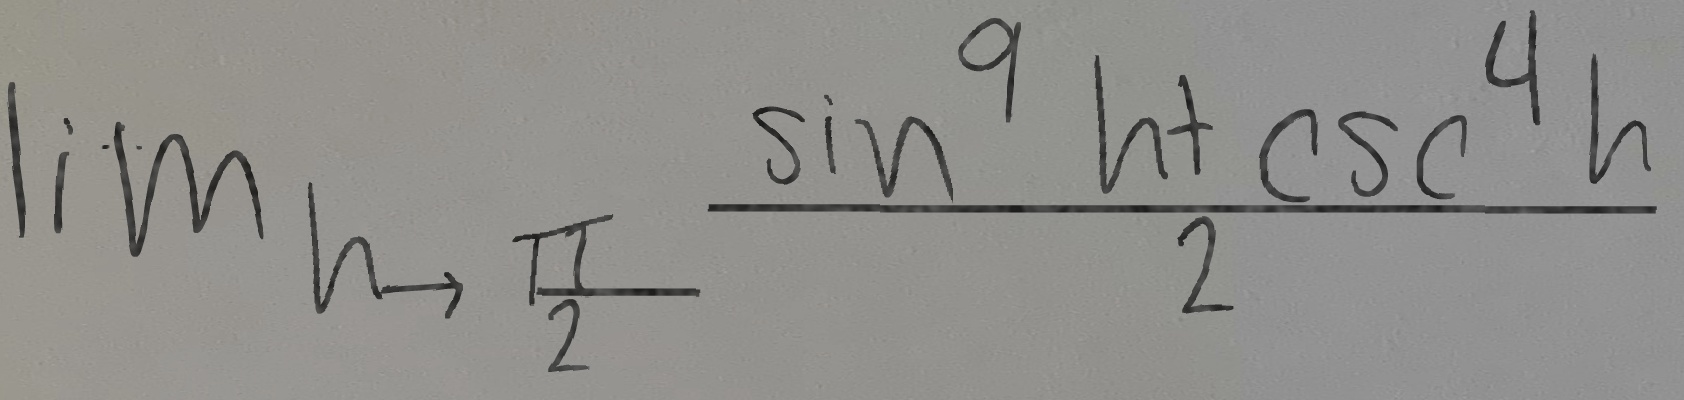 lim h→π/2 (sin^9 h + csc^4 h)/2